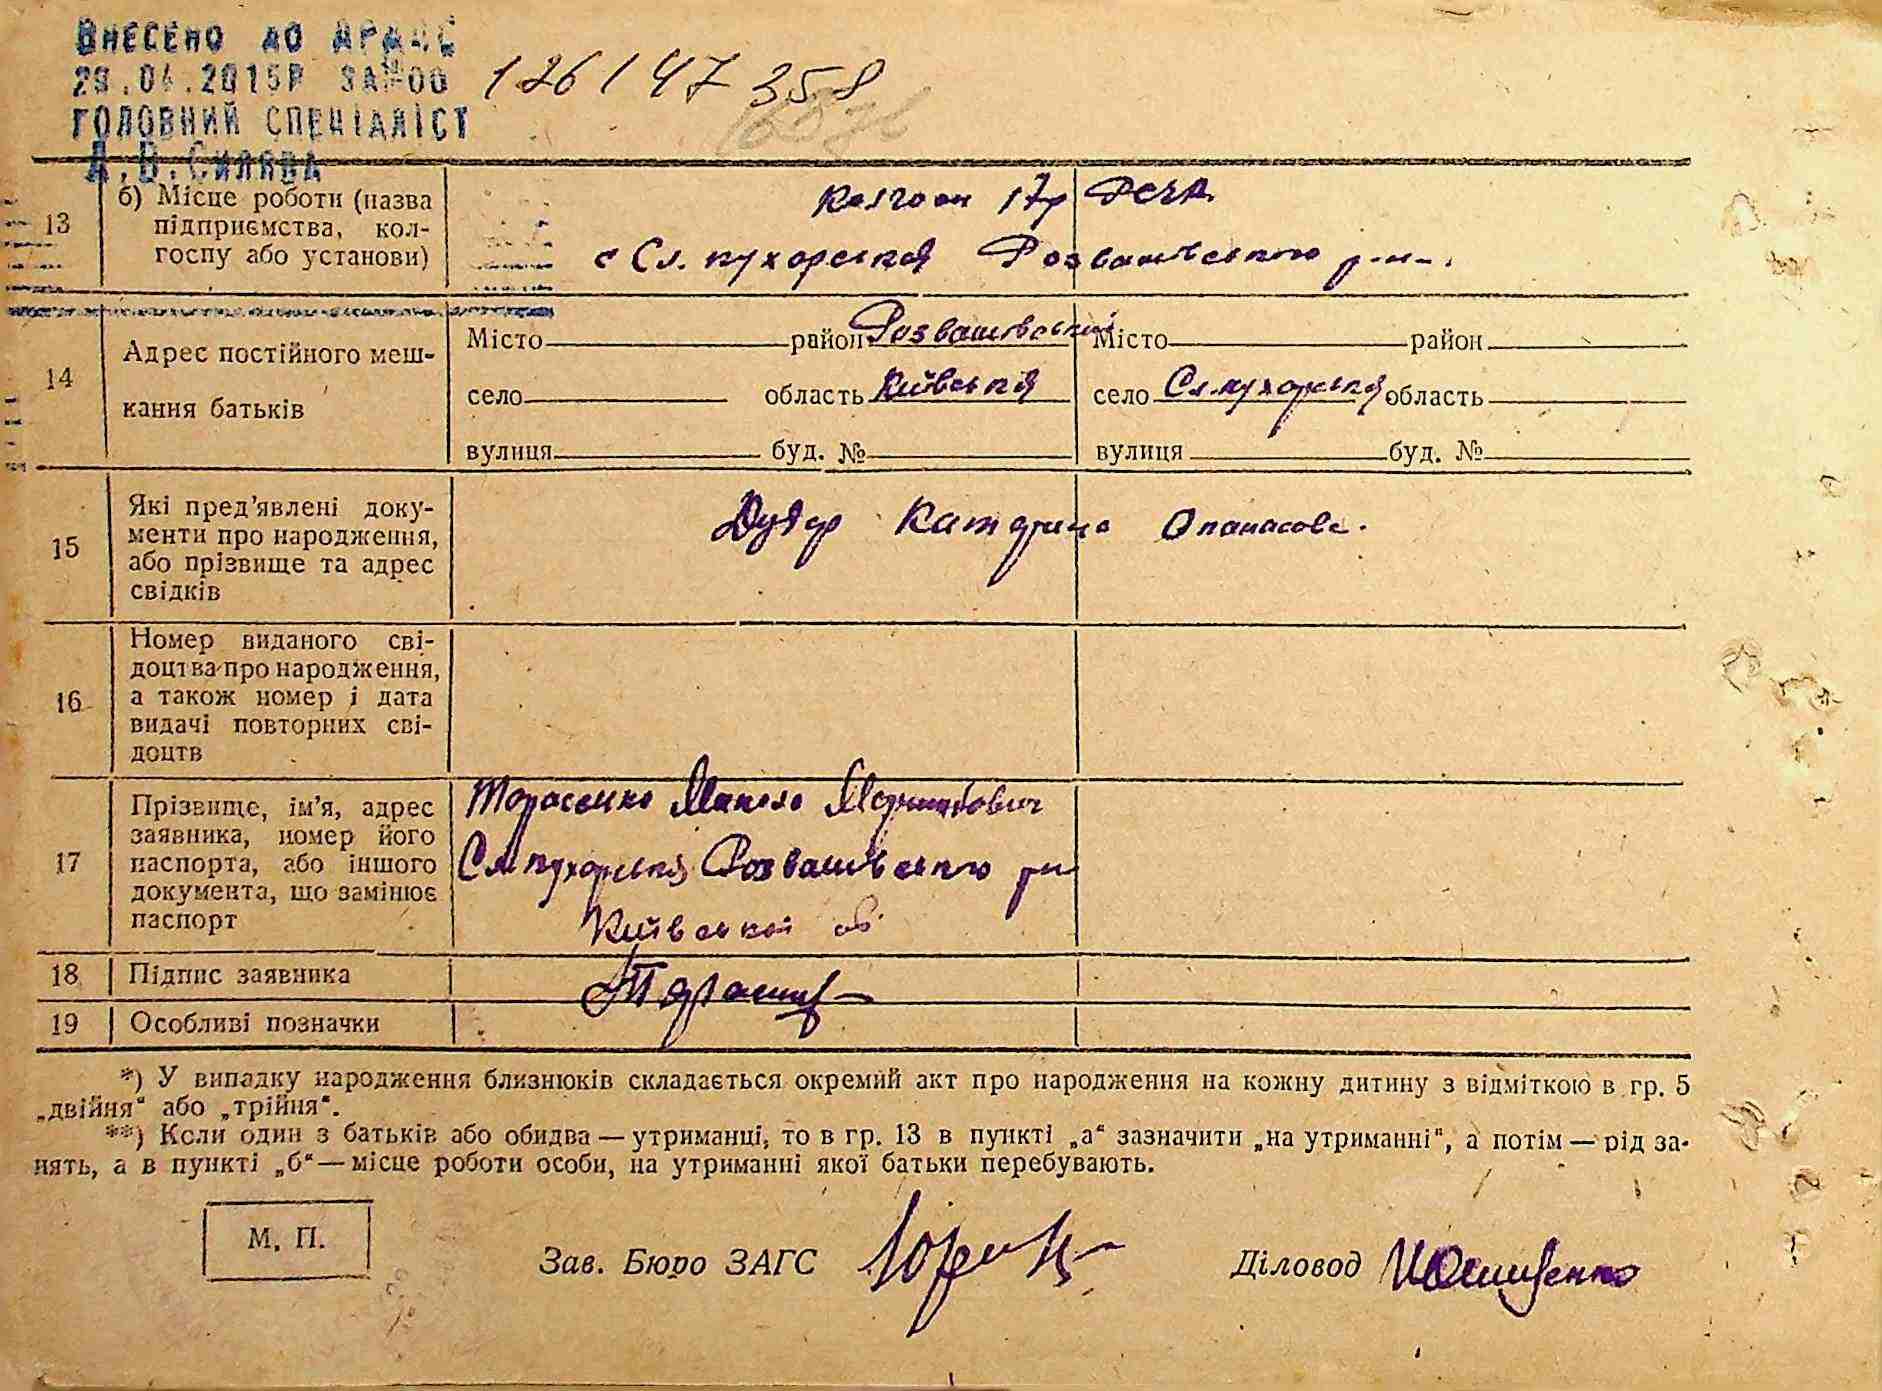 ВНЕСЕНО ДО ДРАЦС
29.04.2015Р ЗА №00 126147358
ГОЛОВНИЙ СПЕЦІАЛІСТ
А.В.СИЛЯВА
13 б) Місце роботи (назва підприємства, колгоспу або установи)
Колгосп 17р РСЧА
с Сл. пухорська Розважівського р-н.
14 Адрес постійного мешкання батьків
Місто район Розважівський Місто район
село область Київська село Сл. пухорська область
вулиця буд. № вулиця буд. №
15 Які пред'явлені доку-
менти про народження,
або прізвище та адрес
свідків
Катерина Опанасова.
16 Номер виданого сві-
доцтва про народження,
а також номер і дата
видачі повторних сві-
доцтв
17 Прізвище, ім'я, адрес
заявника, номер його
паспорта, або іншого
документа, що замінює
паспорт
Тарасенко Микола
Сл пухорська Розважівського рн
Київської об
18 Підпис заявника
19 Особливі позначки
*) У випадку народження близнюків складається окремий акт про народження на кожну дитину з відміткою в гр. 5
„двійня“ або „трійня“.
**) Коли один з батьків або обидва — утриманці, то в гр. 13 в пункті „а“ зазначити „на утриманні“, а потім — рід за-
нять, а в пункті „б“ — місце роботи особи, на утриманні якої батьки перебувають.
М. П.
Зав. Бюро ЗАГС Діловод